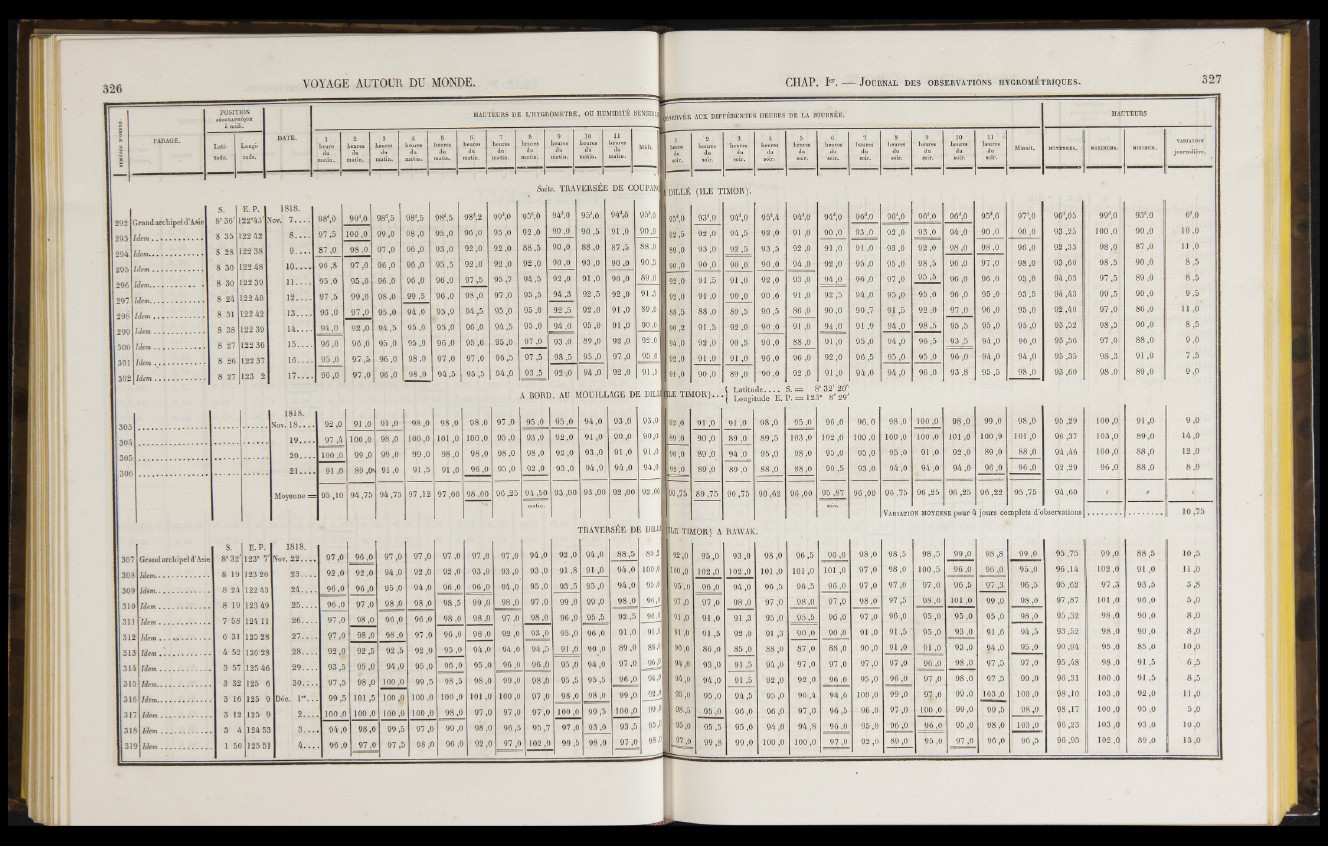 326
VOYAGE AUTOUR DU MONDE.
NUMÉROS D'ORDRE.
PARAGE.
POSITION GÉOGRAPHIQUE à midi.
Lati- tude.
Longi- tude.
DATE.
HAUTEURS DE L'HYGROMÈTRE, OU HUMIDITÉ
1 heure du matin.
2 heures du matin.
3 heures du matin.
4 heures du matin.
5 heures du matin.
6 heures du matin.
7 heures du matin.
8 heures du matin.
9 heures du matin.
10 heures du matin.
11 heures du matin.
Midi.
Suite. TRAVERSÉE DE
S. E. P. 1818.
292 Grand archipel d'Asie 8° 36' 122°43' Nov. 7.... 98d,0 99d,0 98d,5 98d,5 98d,5 98d,2 99d,0 95d,0 94d,0 95d,0 94d,5 95d,0
293 Idem 8 35 122 42 8.... 97 ,5 100 ,0 99 ,0 98 ,0 95 ,0 96 ,0 95 ,0 92 ,0 90 ,0 90 ,5 91 ,0 90 ,0
294 Idem 8 28 122 38 9.... 87 ,0 98 ,0 97 ,0 96 ,0 93 ,0 92 ,0 92 ,0 88 ,5 90 ,0 88 ,0 87 ,5 88 ,0
295 Idem 8 30 122 48 10.... 96 ,8 97 ,0 96 ,0 96 ,0 95 ,5 92 ,0 92 ,0 92 ,0 90 ,0 93 ,0 90 ,0 90 ,5
296 Idem 8 30 122 39 11.... 95 ,0 95 ,0 96 ,0 96 ,0 96 ,0 97 ,5 95 ,7 94 ,5 92 ,0 91 ,0 90 ,0 89 ,0
297 Idem 8 24 122 40 12.... 97 ,5 99 ,0 98 ,0 99 ,5 96 ,0 98 ,0 97 ,0 95 ,5 94 ,3 92 ,5 92 ,0 91 ,5
298 Idem 8 31 122 42 13.... 93 ,0 97 ,0 95 ,0 94 ,0 95 ,0 94 ,5 95 ,0 95 ,0 92 ,5 92 ,0 91 ,0 89 ,0
299 Idem 8 38 122 39 14.... 94 ,0 92 ,0 94 ,5 95 ,0 95 ,0 96 ,0 94 ,5 95 ,0 94 ,0 95 ,0 91 ,0 90 ,0
300 Idem 8 27 122 36 15.... 96 ,0 96 ,0 95 ,0 95 ,0 96 ,0 95 ,0 95 ,0 97 ,0 93 ,0 89 ,0 92 ,0 92 ,0
301 Idem 8 26 122 37 16.... 95 ,0 97 ,5 96 ,0 98 ,0 97 ,0 97 ,0 96 ,5 97 ,5 98 ,5 95 ,0 97 ,0 95 ,0
302 Idem 8 27 123 2 17.... 96 ,0 97 ,0 96 ,0 98 ,0 94 ,5 95 ,5 94 ,0 93 ,5 92 ,0 94 ,0 92 ,0
A BORD, AU MOUILLAGE DE
1818.
303 Nov. 18.... 92 ,0 91 ,0 91 ,0 98 ,0 98 ,0 98 ,0 97 ,0 95 ,0 95 ,0 94 ,0 93 ,0 93 ,0
304 19.... 97 ,4 100 ,0 98 ,0 100 ,0 101 ,0 100 ,0 95 ,0 93 ,0 92 ,0 91 ,0 90 ,0 90 ,0
305 20.... 100 ,0 99 ,0 99 ,0 99 ,0 98 ,0 98 ,0 98 ,0 98 ,0 92 ,0 93 ,0 91 ,0 91 ,0
306 21.... 91 ,0 89 ,0 91 ,0 91 ,5 91 ,0 96 ,0 95 ,0 92 ,0 93 ,0 94 ,0 94 ,0 94 ,0
Moyenne = 95 ,10 94 ,75 94 ,75 97 ,12 97 ,00 98 ,00 96 ,25 94 ,50 93 ,00 93 ,00 92 ,00 92 ,00
matin.
TRAVERSÉE DE
S. E. P. 1818.
307 Grand archipel d'Asie 8° 32' 123° 7' Nov. 22.... 97 ,0 96 ,0 97 ,0 97 ,0 97 ,0 97 ,0 97 ,0 94 ,0 92 ,0 94 ,0 88 ,5
308 Idem 8 19 123 20 23.... 92 ,0 92 ,0 94 ,0 92 ,0 92 ,0 93 ,0 93 ,0 93 ,0 91 ,8 91 ,0 94 ,0 100 ,0
309 Idem 8 24 122 43 24.... 96 ,0 96 ,0 95 ,0 94 ,0 96 ,0 96 ,0 94 ,0 95 ,0 93 ,5 95 ,0 94 ,0 95 ,0
310 Idem 8 19 123 49 25.... 96 ,0 97 ,0 98 ,0 98 ,0 98 ,5 99 ,0 98 ,0 97 ,0 99 ,0 99 ,0 98 ,0
311 Idem 7 58 124 11 26.... 97 ,0 98 ,0 96 ,0 96 ,0 98 ,0 98 ,0 97 ,0 98 ,0 96 ,0 95 ,5 92 ,5
312 Idem 6 31 125 28 27.... 97 ,0 98 ,0 98 ,0 97 ,0 96 ,0 98 ,0 92 ,0 93 ,0 95 ,0 96 ,0 91 ,0
313 Idem 4 52 126 28 28.... 92 ,0 92 ,5 92 ,5 92 ,0 95 ,0 94 ,0 94 ,0 94 ,5 91 ,0 90 ,0 89 ,0
314 Idem 3 57 125 46 29.... 93 ,5 95 ,0 94 ,0 95 ,0 96 ,0 95 ,0 96 ,0 96 ,0 95 ,0 94 ,0 97 ,0 96 ,0
315 Idem 3 32 125 6 30.... 97 ,5 98 ,0 100 ,0 99 ,5 98 ,5 98 ,0 99 ,0 98 ,0 95 ,5 95 ,5 96 ,0
316 Idem 3 16 125 9 Déc. 1er... 99 ,5 101 ,5 100 ,0 100 ,0 100 ,0 101 ,0 100 ,0 97 ,0 98 ,0 98 ,0 99 ,0
317 Idem 3 12 125 9 2.... 100 ,0 100 ,0 100 ,0 100 ,0 98 ,0 97 ,0 97 ,0 97 ,0 100 ,0 99 ,5 100 ,0
318 Idem 3 4 124 53 3.... 94 ,0 98 ,0 99 ,5 97 ,0 99 ,0 98 ,0 96 ,5 95 ,7 97 ,0 93 ,0 93 ,5
319 Idem 1 50 125 51 4.... 96 ,0 97 ,0 97 ,5 98 ,0 96 ,0 92 ,0 97 ,0 102 ,0 99 ,5 98 ,0 97 ,0
CHAP. Ier. — JOURNAL DES OBSERVATIONS HYGROMÉTRIQUES.
327
AUX DIFFÉRENTES HEURES DE LA JOURNÉE.
HAUTEURS
1 heure du soir.
2 heures du soir.
3 heures du soir.
4 heures du soir.
5 heures du soir.
6 heures du soir.
7 heures du soir.
8 heures du soir.
9 heures du soir.
10 heures du soir.
11 heures du soir.
Minuit.
MOYENNES.
MAXIMUMS.
MINIMUMS.
VARIATION journalière.
DILLÉ (ILE TIMOR).
95d,0 93d,0 95d,0 95d,4 94d,0 94d,0 96d,0 96d,0 96d,0 96d,0 95d,0 97d,0 96d,05 99d,0 93d,0 6d,0
92 ,5 92 ,0 94 ,5 92 ,0 91 ,0 90 ,0 93 ,0 92 ,0 93 ,0 94 ,0 90 ,0 90 ,0 93 ,25 100 ,0 90 ,0 10 ,0
89 ,0 93 ,0 92 ,5 93 ,5 92 ,0 91 ,0 91 ,0 93 ,0 92 ,0 98 ,0 98 ,0 96 ,0 92 ,33 98 ,0 87 ,0 11 ,0
90 ,0 90 ,0 90 ,0 90 ,0 94 ,0 92 ,0 95 ,0 95 ,0 98 ,5 96 ,0 97 ,0 98 ,0 93 ,60 98 ,5 90 ,0 8 ,5
92 ,0 91 ,5 91 ,0 92 ,0 93 ,0 94 ,0 96 ,0 97 ,0 95 ,5 96 ,0 96 ,0 95 ,0 94 ,05 97 ,5 89 ,0 8 ,5
92 ,0 91 ,0 90 ,0 90 ,0 91 ,0 92 ,5 94 ,0 95 ,0 95 ,0 96 ,0 95 ,0 93 ,5 94 ,43 99 ,5 90 ,0 9 ,5
88 ,5 88 ,0 89 ,5 90 ,5 86 ,0 90 ,0 90 ,7 91 ,5 92 ,0 97 ,0 96 ,0 95 ,0 92 ,40 97 ,0 86 ,0 11 ,0
90 ,2 91 ,5 92 ,0 90 ,0 91 ,0 94 ,0 91 ,9 94 ,0 98 ,5 95 ,5 95 ,0 95 ,0 93 ,52 98 ,5 90 ,0 8 ,5
94 ,0 92 ,0 90 ,5 90 ,0 88 ,0 91 ,0 95 ,0 94 ,0 96 ,5 93 ,5 94 ,0 96 ,0 93 ,56 97 ,0 88 ,0 9 ,0
92 ,0 91 ,0 91 ,0 96 ,0 96 ,0 92 ,0 96 ,5 95 ,0 95 ,0 96 ,0 94 ,0 94 ,0 95 ,35 98 ,3 91 ,0 7 ,5
91 ,0 90 ,0 89 ,0 90 ,0 92 ,0 91 ,0 94 ,0 94 ,0 96 ,0 93 ,8 95 ,5 98 ,0 93 ,60 98 ,0 89 ,0 9 ,0
TIMOR)... { Latitude.... S. = 8° 32' 20"
Longitude E. P. = 123° 8' 29"
92 ,0 91 ,0 91 ,0 98 ,0 95 ,0 96 ,0 96 ,0 98 ,0 100 ,0 98 ,0 99 ,0 98 ,0 95 ,29 100 ,0 91 ,0 9 ,0
89 ,0 90 ,0 89 ,0 89 ,5 103 ,0 102 ,0 100 ,0 100 ,0 100 ,0 101 ,0 100 ,9 101 ,0 96 ,37 103 ,0 89 ,0 14 ,0
90 ,0 89 ,0 94 ,0 95 ,0 98 ,0 95 ,0 95 ,0 95 ,0 91 ,0 92 ,0 89 ,0 88 ,0 94 ,46 100 ,0 88 ,0 12 ,0
92 ,0 89 ,0 89 ,0 88 ,0 88 ,0 90 ,5 93 ,0 94 ,0 94 ,0 94 ,0 96 ,0 96 ,0 92 ,29 96 ,0 88 ,0 8 ,0
90 ,75 89 ,75 90 ,75 92 ,62 96 ,00 95 ,87 96 ,00 96 ,75 96 ,25 96 ,25 96 ,22 95 ,75 94 ,60
soir.
VARIATION MOYENNE pour 4 jours complets d'observations 10 ,75
TIMOR) A RAWAK.
92 ,0 95 ,0 93 ,0 98 ,0 96 ,5 96 ,0 98 ,0 98 ,5 98 ,5 99 ,0 98 ,8 99 ,0 95 ,75 99 ,0 88 ,5 10 ,5
100 ,0 102 ,0 102 ,0 101 ,0 101 ,0 101 ,0 97 ,0 98 ,0 100 ,5 96 ,0 96 ,0 95 ,0 96 ,14 102 ,0 91 ,0 11 ,0
95 ,0 96 ,0 94 ,0 96 ,5 94 ,5 96 ,0 97 ,0 97 ,0 97 ,0 96 ,5 97 ,3 96 ,5 95 ,62 97 ,3 93 ,5 3 ,8
97 ,0 97 ,0 98 ,0 97 ,0 98 ,0 97 ,0 98 ,0 97 ,5 98 ,0 101 ,0 99 ,0 98 ,0 97 ,87 101 ,0 96 ,0 5 ,0
91 ,0 91 ,0 91 ,3 95 ,0 95 ,5 96 ,0 97 ,0 96 ,0 95 ,0 95 ,0 95 ,0 98 ,0 95 ,52 98 ,0 90 ,0 8 ,0
91 ,0 91 ,5 92 ,0 91 ,3 90 ,0 90 ,0 91 ,0 91 ,5 95 ,0 93 ,0 91 ,0 94 ,5 93 ,52 98 ,0 90 ,0 8 ,0
90 ,0 86 ,0 85 ,0 88 ,0 87 ,0 88 ,0 90 ,0 91 ,0 91 ,0 93 ,0 94 ,0 95 ,0 90 ,94 95 ,0 85 ,0 10 ,0
94 ,0 93 ,0 91 ,5 94 ,0 97 ,0 97 ,0 97 ,0 97 ,0 96 ,0 98 ,0 97 ,5 97 ,0 95 ,48 98 ,0 91 ,5 6 ,5
94 ,0 94 ,0 91 ,5 92 ,0 92 ,0 96 ,0 95 ,0 96 ,0 97 ,0 98 ,0 97 ,5 99 ,0 96 ,31 100 ,0 91 ,5 8 ,5
95 ,0 95 ,0 94 ,5 95 ,0 96 ,4 94 ,0 100 ,0 99 ,0 97 ,0 99 ,0 103 ,0 100 ,0 98 ,10 103 ,0 92 ,0 11 ,0
98 ,5 95 ,0 96 ,0 96 ,0 97 ,0 96 ,5 96 ,0 97 ,0 100 ,0 99 ,0 99 ,5 98 ,0 98 ,17 100 ,0 95 ,0 5 ,0
95 ,0 95 ,5 95 ,0 94 ,0 94 ,8 96 ,0 95 ,0 96 ,0 96 ,0 95 ,0 98 ,0 103 ,0 96 ,23 103 ,0 93 ,0 10 ,0
97 ,0 99 ,8 99 ,0 100 ,0 100 ,0 97 ,0 92 ,0 89 ,0 95 ,0 97 ,0 96 ,0 96 ,5 96 ,93 102 ,0 89 ,0 13 ,0